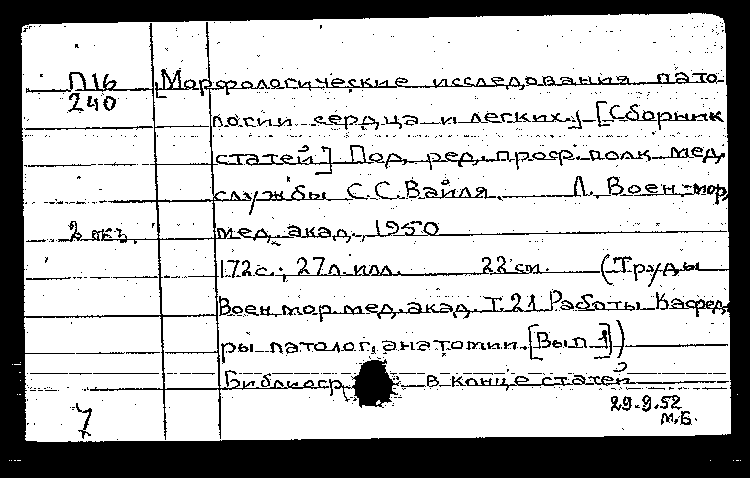 П16 [Морфологические исследования пато-
240 логии сердца и легких.] [Сборник
статей] Под. ред. проф. полк. мед.
службы С.С. Вайля. Л. Воен-мор.
2 экз. мед. акад., 1950
172 с.; 27 л. илл. 22 см. (Труды
Воен. мор. мед. акад. Т. 21 Работы Кафед-
ры патолог. анатомии. [Вып. 1])
Библиогр. в конце статей
29.9.52
7 М.Б.